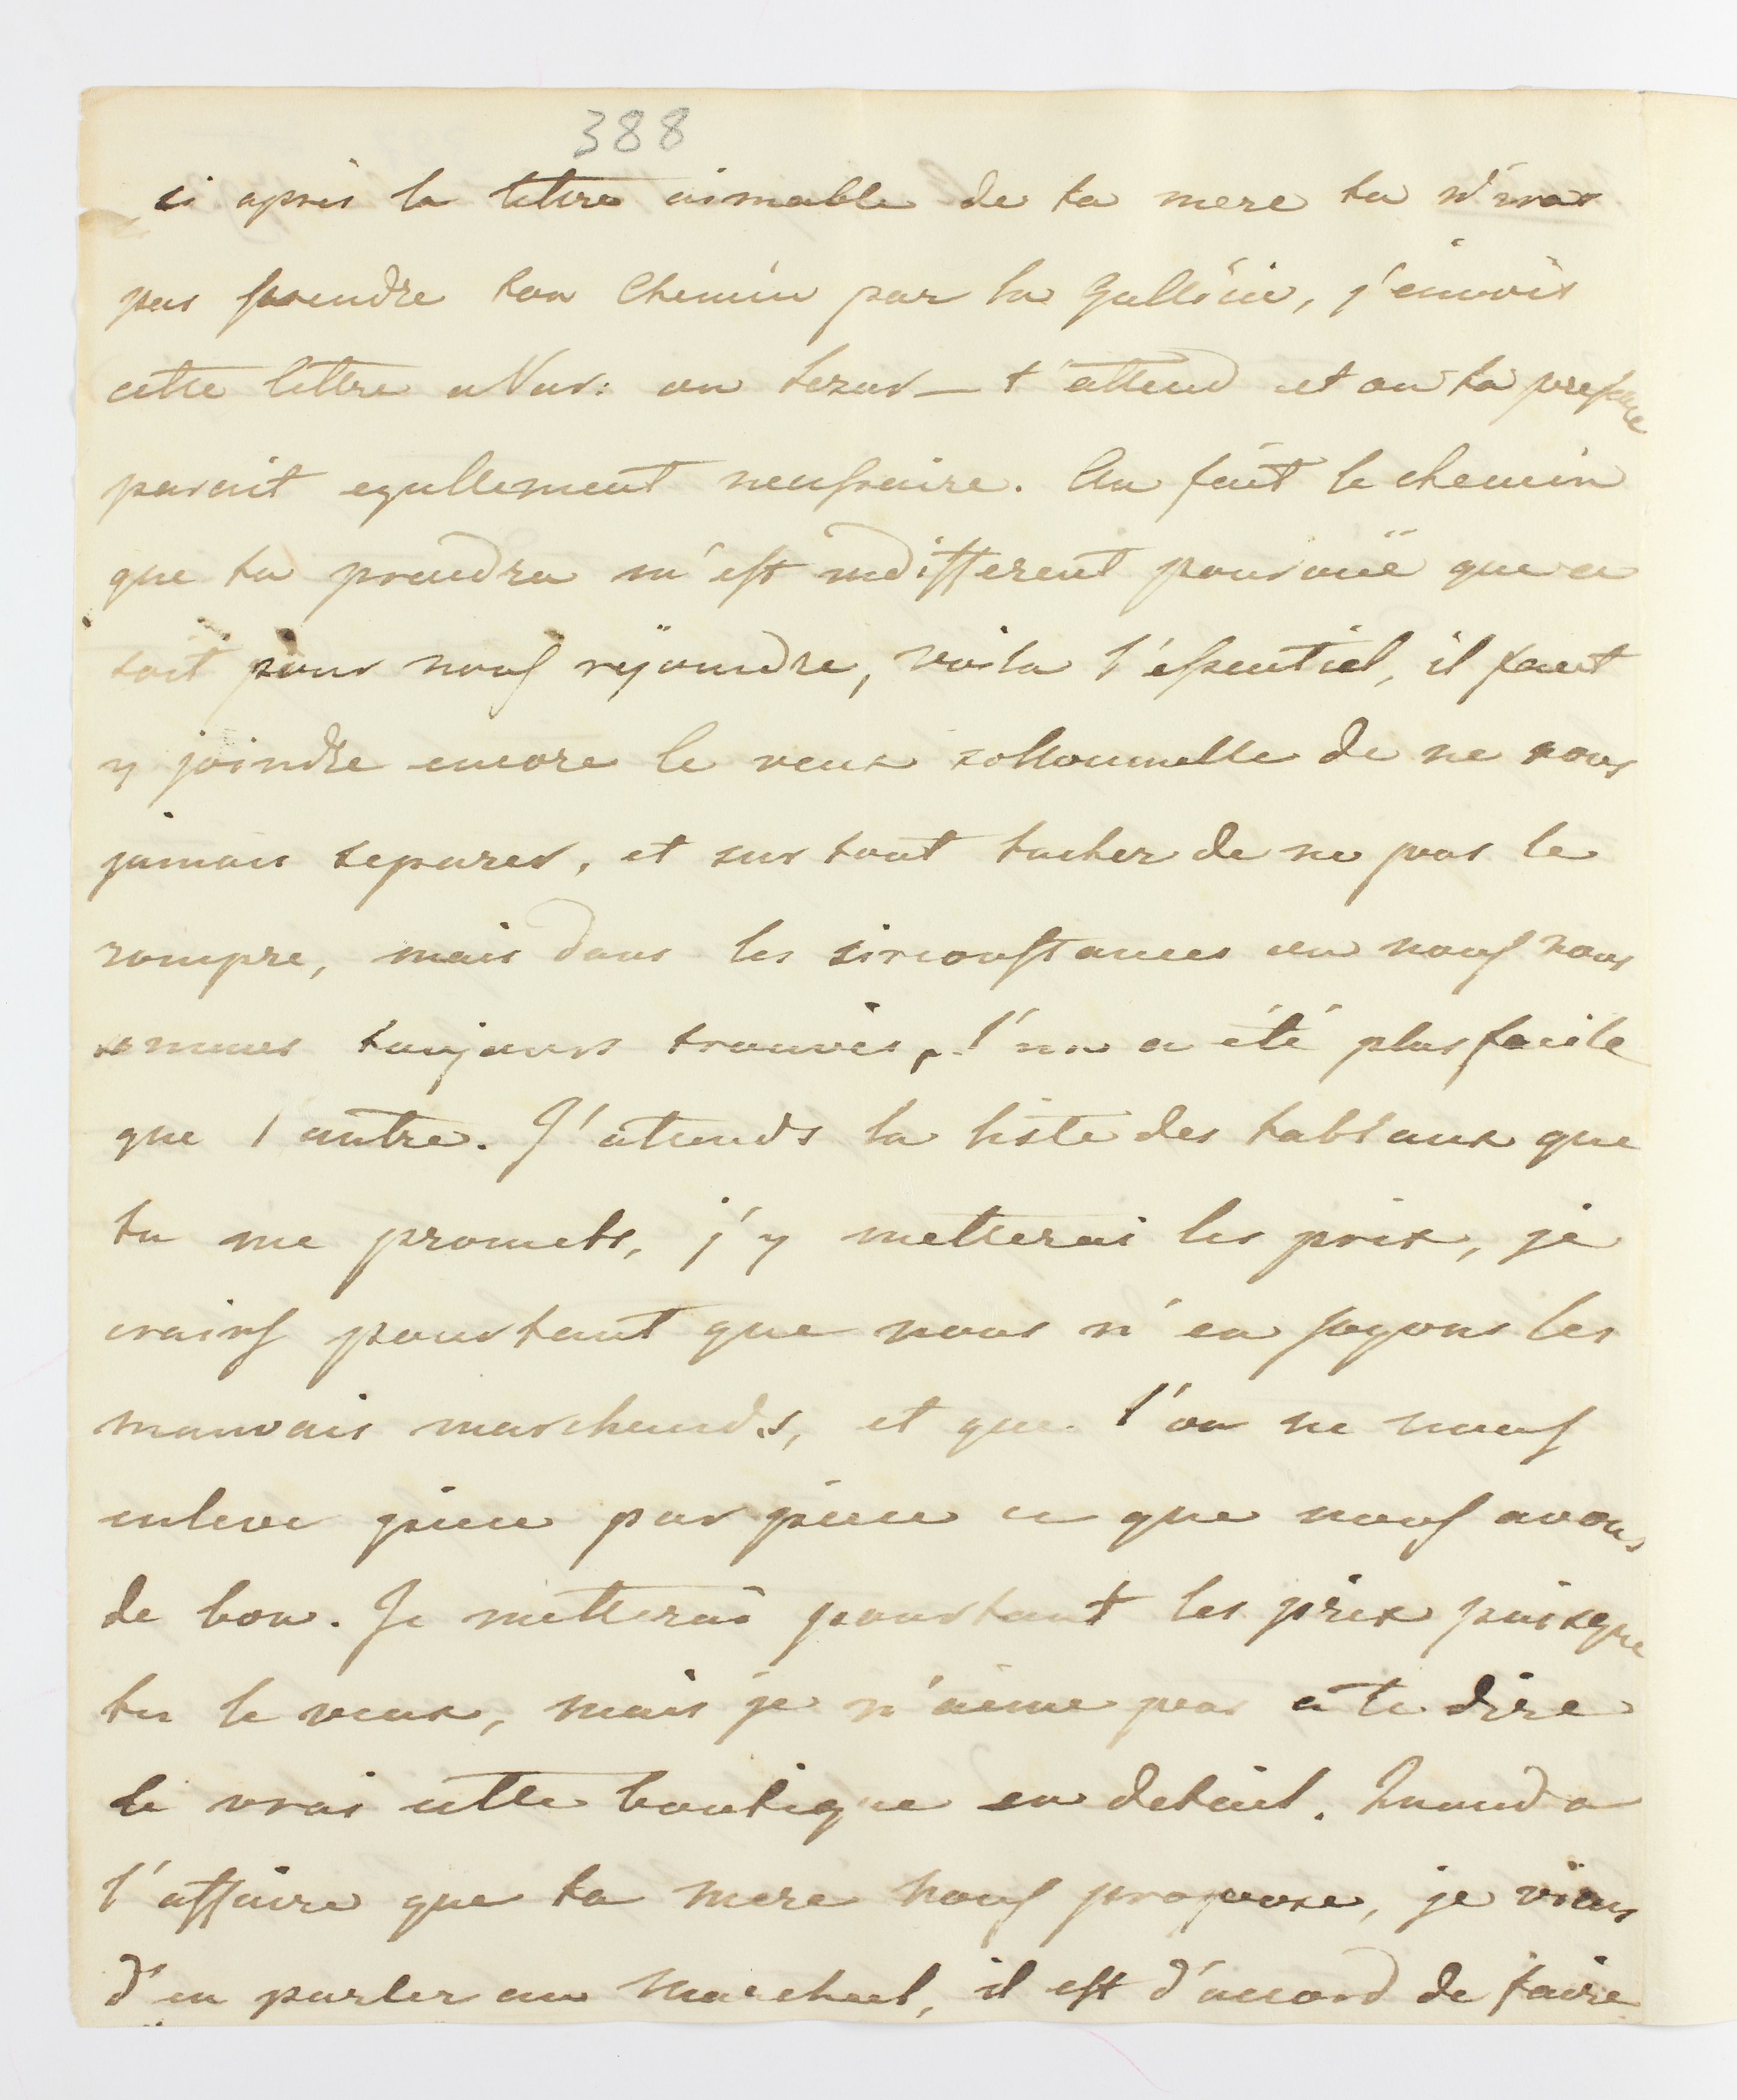 388
si après la lettre aimable de ta mere tu n'iras
pas prendre ton chemin par la Gallicie, j'envois
cette lettre a Var: on t'attend et ou ta presence
parait egallement necessaire. Au fait le chemin
que tu prendra m'est indifferent pourvuë que ce
soit pour nous rejoindre, voila l'essentiel, il faut
y joindre encore le veux sollonnelle de ne nous
jamais separer, et sur tout tacher de ne pas le
rompre, mais dans les sirconstances ou nous nous
sommes toujours trouvés, l'un a été plus facile
que l autre. J'attends la liste des tableaux que
tu me promets, j'y metterai les prix, je
crains pourtant que nous n'en soyons les
mauvais marchands, et que l'on ne nous
enleve piece par piece ce que nous avons
de bon. Je metterai pourtant les prix puisque
tu le veux, mais je n'aime pas a te dire
le vrai cette boutique en detail. Quand a
l'affaire que ta mere nous propose, je viens
d'en parler au Marechal, il est d'accord de faire